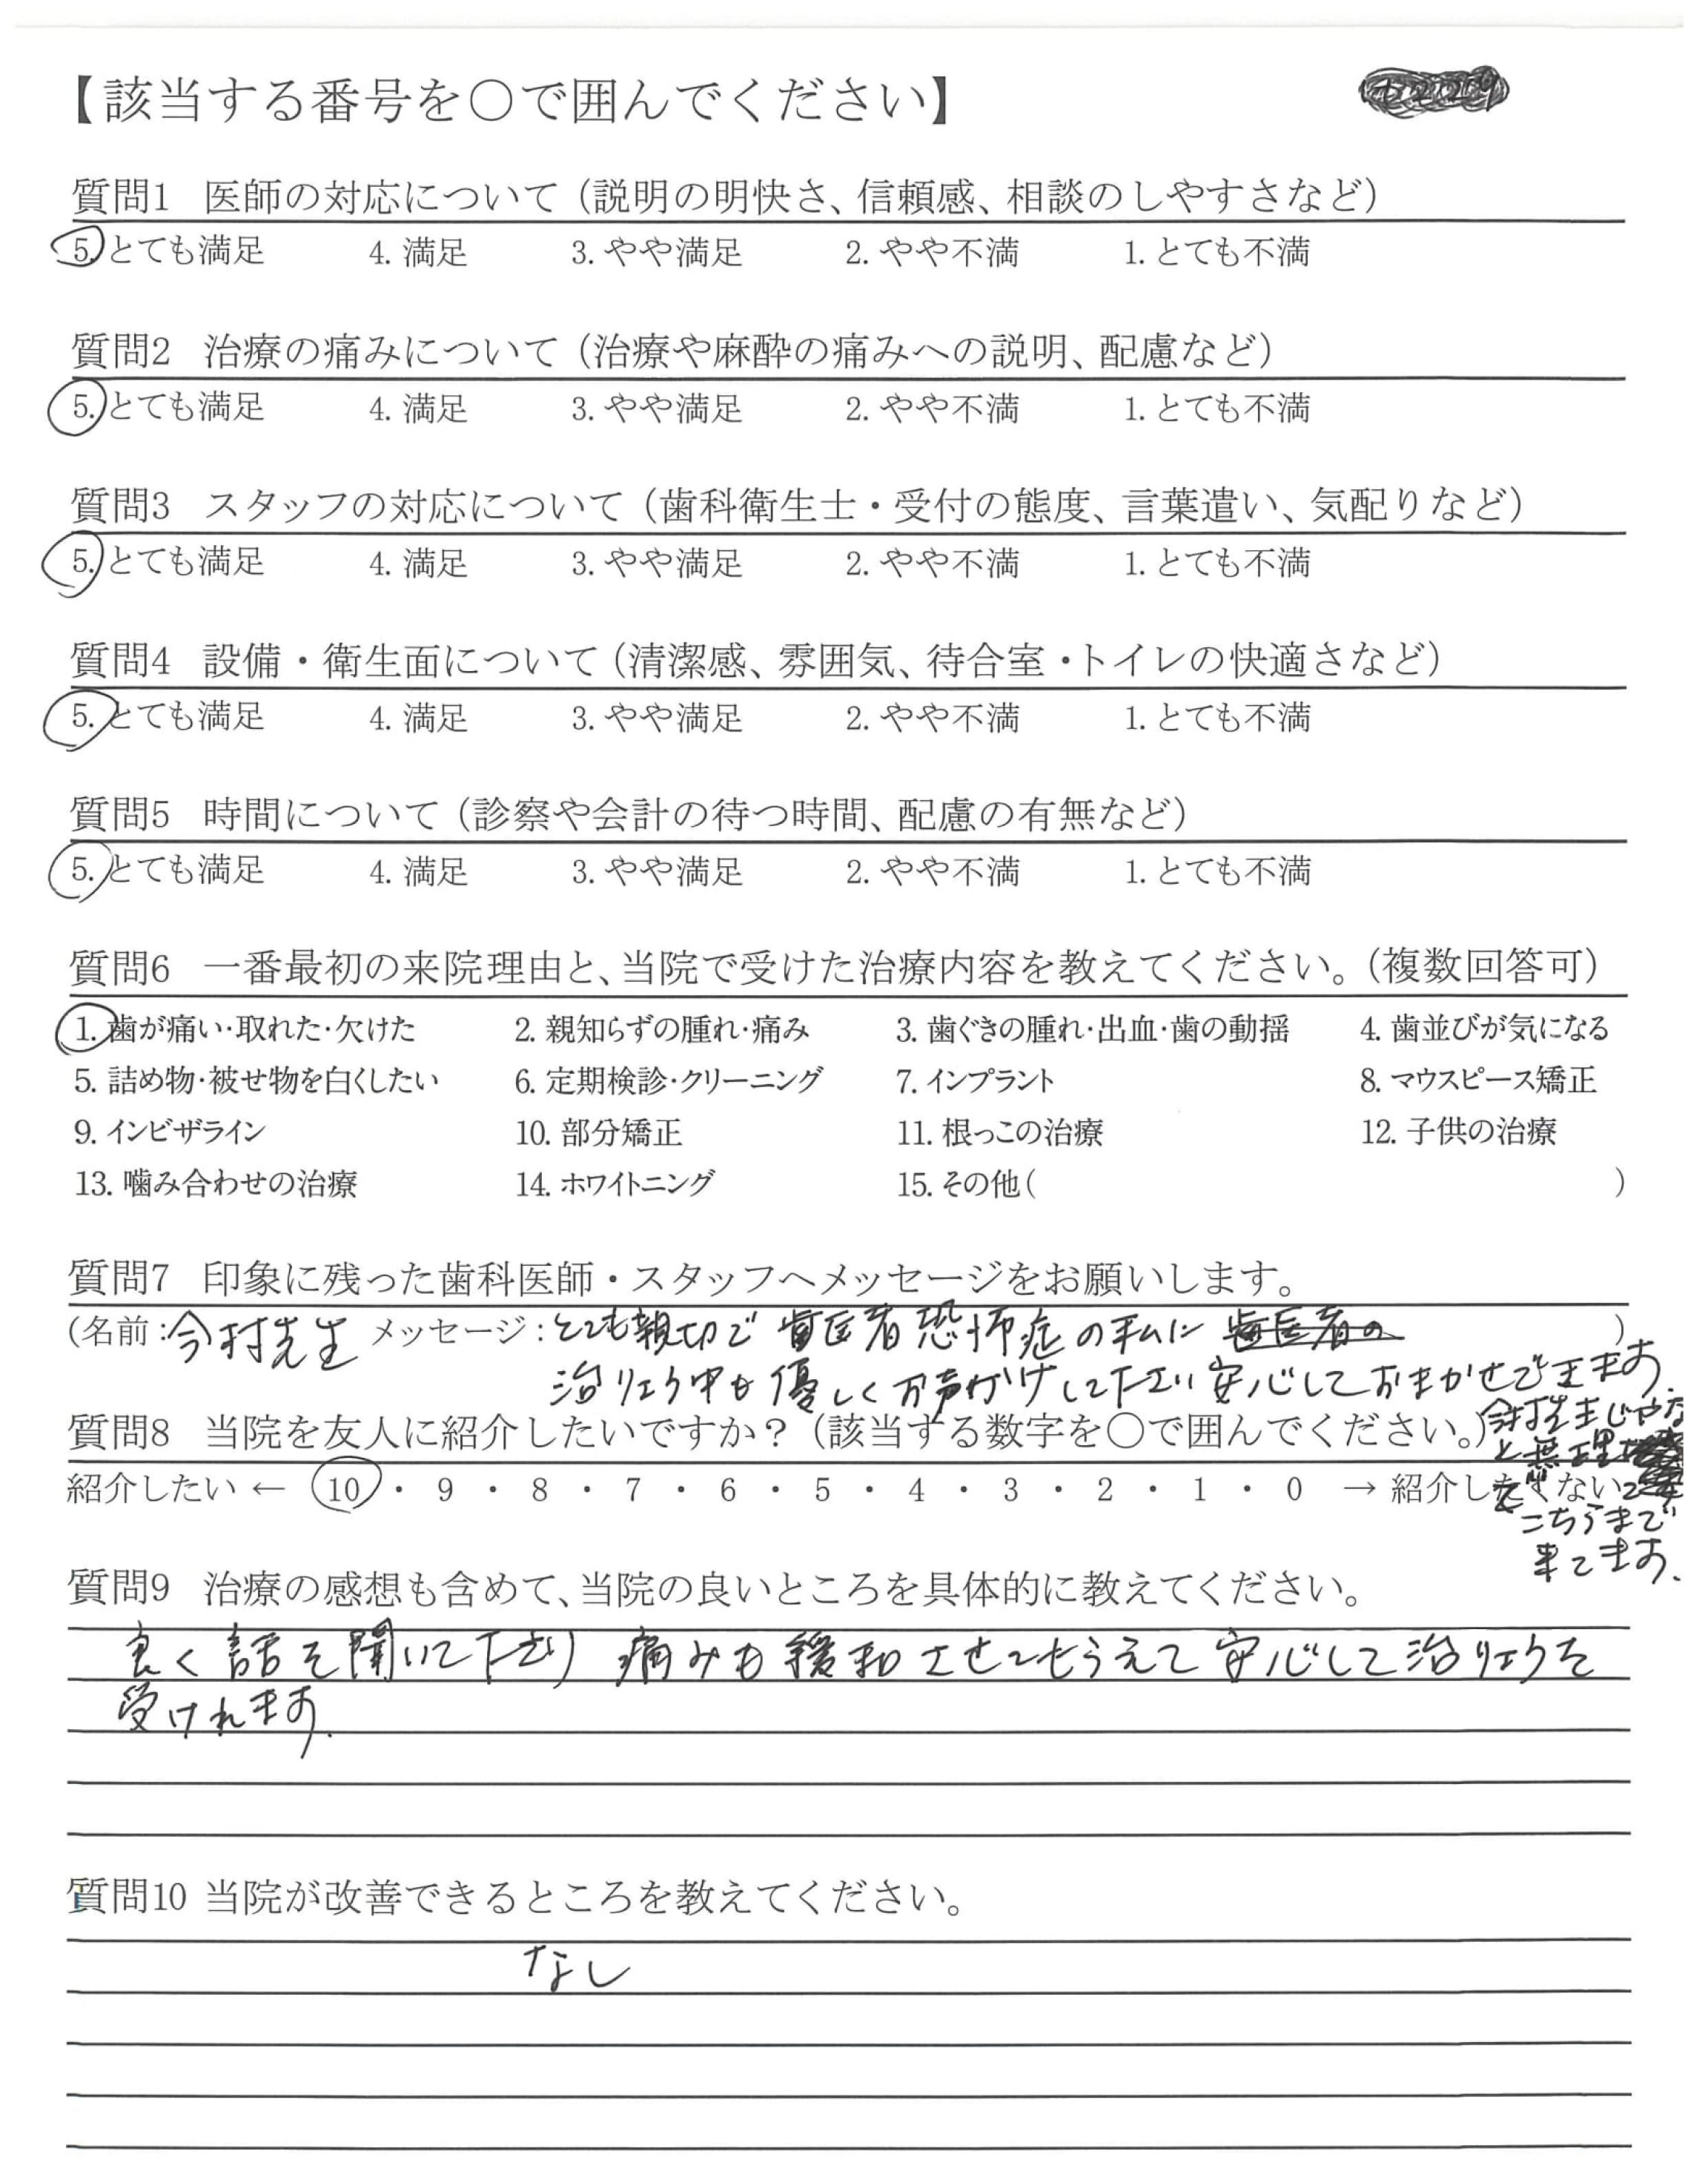 【該当する番号を〇で囲んでください】
質問1 医師の対応について（説明の明快さ、信頼感、相談のしやすさなど）
5. とても満足 4. 満足 3. やや満足 2. やや不満 1. とても不満
質問2 治療の痛みについて（治療や麻酔の痛みへの説明、配慮など）
5. とても満足 4. 満足 3. やや満足 2. やや不満 1. とても不満
質問3 スタッフの対応について（歯科衛生士・受付の態度、言葉遣い、気配りなど）
5. とても満足 4. 満足 3. やや満足 2. やや不満 1. とても不満
質問4 設備・衛生面について（清潔感、雰囲気、待合室・トイレの快適さなど）
5. とても満足 4. 満足 3. やや満足 2. やや不満 1. とても不満
質問5 時間について（診察や会計の待つ時間、配慮の有無など）
5. とても満足 4. 満足 3. やや満足 2. やや不満 1. とても不満
質問6 一番最初の来院理由と、当院で受けた治療内容を教えてください。（複数回答可）
1. 歯が痛い・取れた・欠けた 2. 親知らずの腫れ・痛み 3. 歯ぐきの腫れ・出血・歯の動揺 4. 歯並びが気になる
5. 詰め物・被せ物を白くしたい 6. 定期検診・クリーニング 7. インプラント 8. マウスピース矯正
9. インビザライン 10. 部分矯正 11. 根っこの治療 12. 子供の治療
13. 噛み合わせの治療 14. ホワイトニング 15. その他（ ）
質問7 印象に残った歯科医師・スタッフへメッセージをお願いします。
（名前：今村先生 メッセージ：とても親切で 歯医者恐怖症の私に 歯医者の ）
治リョウ中も優しくお声がけして下さい安心しておまかせできます。
今村先生じゃな
と無理
で
こちらまで
来てます。
質問8 当院を友人に紹介したいですか？（該当する数字を〇で囲んでください。）
紹介したい ← 10 ・ 9 ・ 8 ・ 7 ・ 6 ・ 5 ・ 4 ・ 3 ・ 2 ・ 1 ・ 0 → 紹介したくない
質問9 治療の感想も含めて、当院の良いところを具体的に教えてください。
良く話を聞いて下さり 痛みも緩和させてもらえて安心して治リョウを
受けれます。
質問10 当院が改善できるところを教えてください。
なし